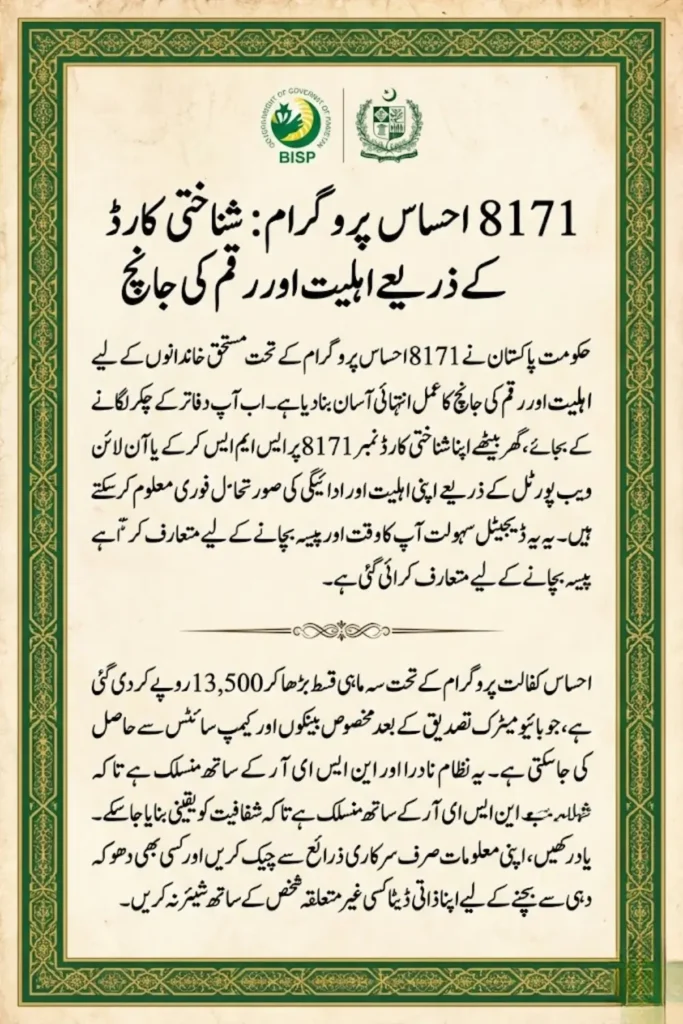 GOVERNMENT OF PAKISTAN
BISP
8171 احساس پروگرام: شناختی کارڈ
کے ذریعے اہلیت اور رقم کی جانچ
حکومت پاکستان نے 8171 احساس پروگرام کے تحت مستحق خاندانوں کے لیے
اہلیت اور رقم کی جانچ کا عمل انتہائی آسان بنا دیا ہے۔ اب آپ دفاتر کے چکر لگانے
کے بجائے، گھر بیٹھے اپنا شناختی کارڈ نمبر 8171 پر ایس ایم ایس کر کے یا آن لائن
ویب پورٹل کے ذریعے اپنی اہلیت اور ادائیگی کی فوری معلوم کر سکتے
ہیں۔ یہ یہ ڈیجیٹل سہولت آپ کا وقت اور پیسہ بچانے کے لیے متعارف ہے
پیسہ بچانے کے لیے متعارف کرائی گئی ہے۔
احساس کفالت پروگرام کے تحت سہ ماہی قسط بڑھا کر 13,500 روپے کر دی گئی
ہے، جو بائیو میٹرک تصدیق کے بعد مخصوص بینکوں اور کیمپ سائٹس سے حاصل
کی جا سکتی ہے۔ یہ نظام نادرا اور این ایس ای آر کے ساتھ منسلک ہے تاکہ
این ایس ای آر کے ساتھ منسلک ہے تاکہ شفافیت کو یقینی بنایا جا سکے۔
یاد رکھیں، اپنی معلومات صرف سرکاری ذرائع سے چیک کریں اور کسی بھی دھوکہ
دہی سے بچنے کے لیے اپنا ذاتی ڈیٹا کسی غیر متعلقہ شخص کے ساتھ شیئر نہ کریں۔